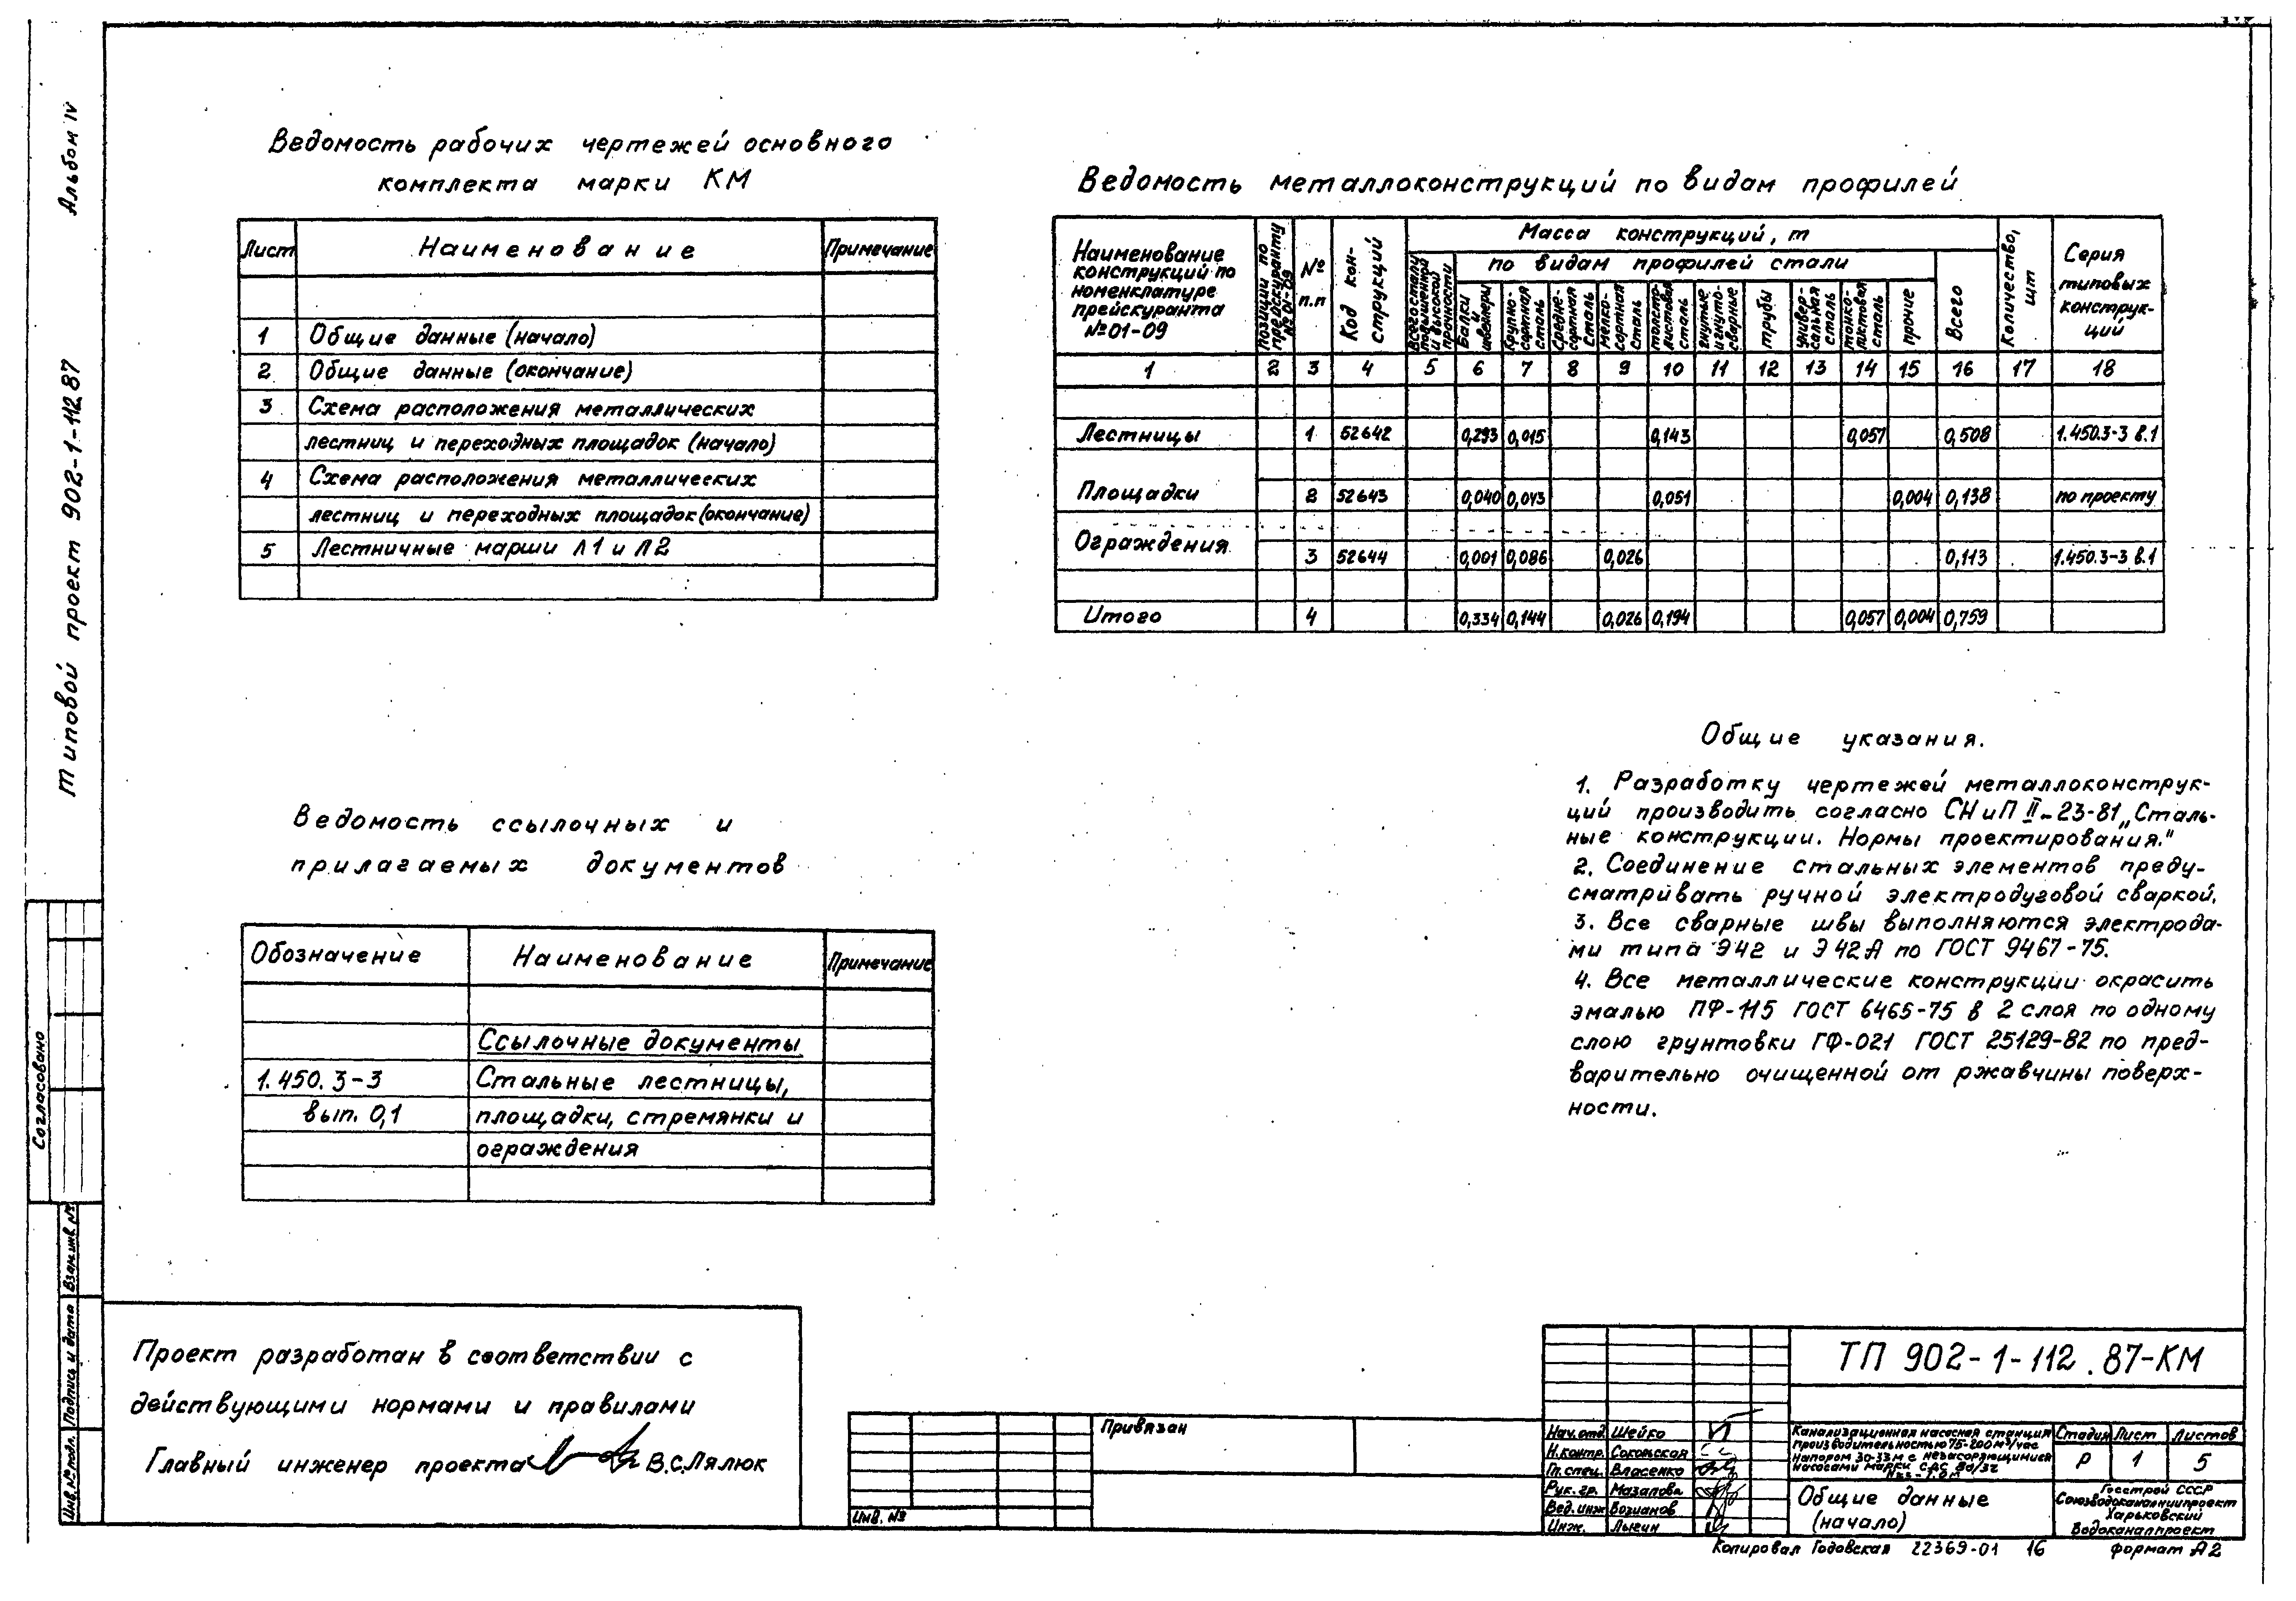 Альбом IV
Типовой проект 902-1-112.87
Согласовано
Взам.инв.№
Подпись и дата
Инв.№ подл.
Ведомость рабочих чертежей основного
комплекта марки КМ
Лист Наименование Примечание
1 Общие данные (начало)
2 Общие данные (окончание)
3 Схема расположения металлических
лестниц и переходных площадок (начало)
4 Схема расположения металлических
лестниц и переходных площадок (окончание)
5 Лестничные марши Л1 и Л2
Ведомость металлоконструкций по видам профилей
Наименование
конструкций по
номенклатуре
прейскуранта
№01-09
Позиции по
прейскуранту
№ 01-09
№
п.п
Код кон-
струкций
Масса конструкций, т
Всего стали
повышенной
и высокой
прочности
по видам профилей стали
Балки
и
швеллеры
Крупно-
сортная
сталь
Средне-
сортная
сталь
Мелко-
сортная
сталь
Толсто-
листовая
сталь
гнутые
и гнуто-
сварные
трубы
универ-
сальная
сталь
тонко-
листовая
сталь
прочие
Всего
Количество,
шт
Серия
типовых
конструк-
ций
1 2 3 4 5 6 7 8 9 10 11 12 13 14 15 16 17 18
Лестницы 1 52642 0,293 0,015 0,143 0,057 0,508 1.450.3-3 в.1
Площадки 2 52643 0,040 0,043 0,051 0,004 0,138 по проекту
Ограждения 3 52644 0,001 0,086 0,026 0,113 1.450.3-3 в.1
Итого 4 0,334 0,144 0,026 0,194 0,057 0,004 0,759
Ведомость ссылочных и
прилагаемых документов
Обозначение Наименование Примечание
Ссылочные документы
1.450.3-3 Стальные лестницы,
вып. 0,1 площадки, стремянки и
ограждения
Общие указания.
1. Разработку чертежей металлоконструк-
ций производить согласно СНиП II-23-81 „Сталь-
ные конструкции. Нормы проектирования."
2. Соединение стальных элементов преду-
сматривать ручной электродуговой сваркой.
3. Все сварные швы выполняются электрода-
ми типа Э42 и Э42А по ГОСТ 9467-75.
4. Все металлические конструкции окрасить
эмалью ПФ-115 ГОСТ 6465-75 в 2 слоя по одному
слою грунтовки ГФ-021 ГОСТ 25129-82 по пред-
варительно очищенной от ржавчины поверх-
ности.
Проект разработан в соответствии с
действующими нормами и правилами
Главный инженер проекта В.С.Лялюк
Привязан
Инв. №
ТП 902-1-112.87-КМ
Нач.отд. Шейко
Н.контр. Сокольская
Гл.спец. Власенко
Рук.гр. Мазалова
Вед.инж. Возианов
Инж. Лыгин
Канализационная насосная станция
производительностью 75-200м³/час
напором 30-33м с незасоряющимися
насосами марки СДС 80/32
Стадия Лист Листов
Р 1 5
Общие данные
(начало)
Госстрой СССР
Союзводоканалниипроект
Харьковский
Водоканалпроект
Копировал Годовская 22369-01 16 формат А2